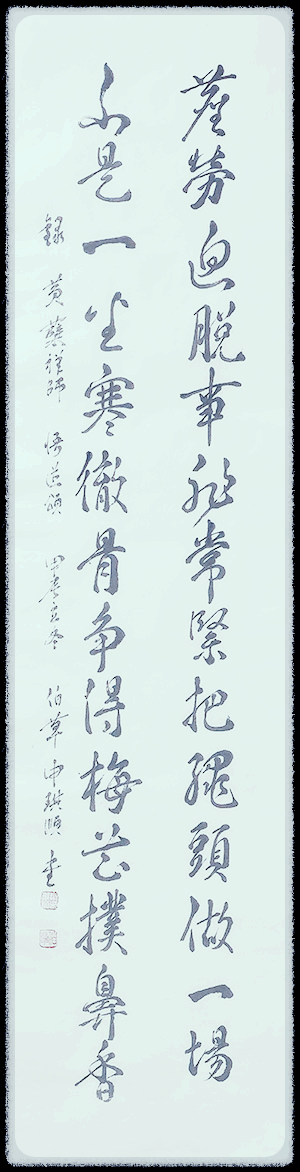 塵勞迥脫事非常緊把繩頭做一場
不是一坐寒徹骨争得梅花撲鼻香
錄 黃蘗禪師 悟道頌 立冬 申順 書